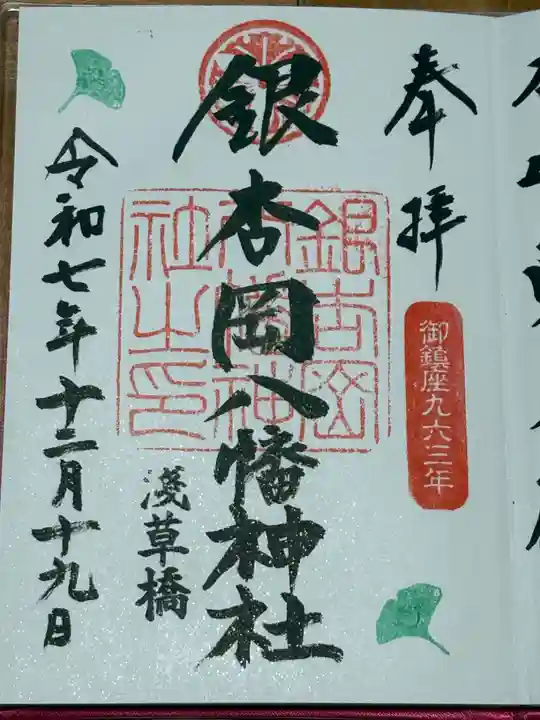 奉拝
御鎮座九六三年
銀杏岡八幡神社
銀杏岡
八幡神
社之印
淺草橋
令和七年十二月十九日